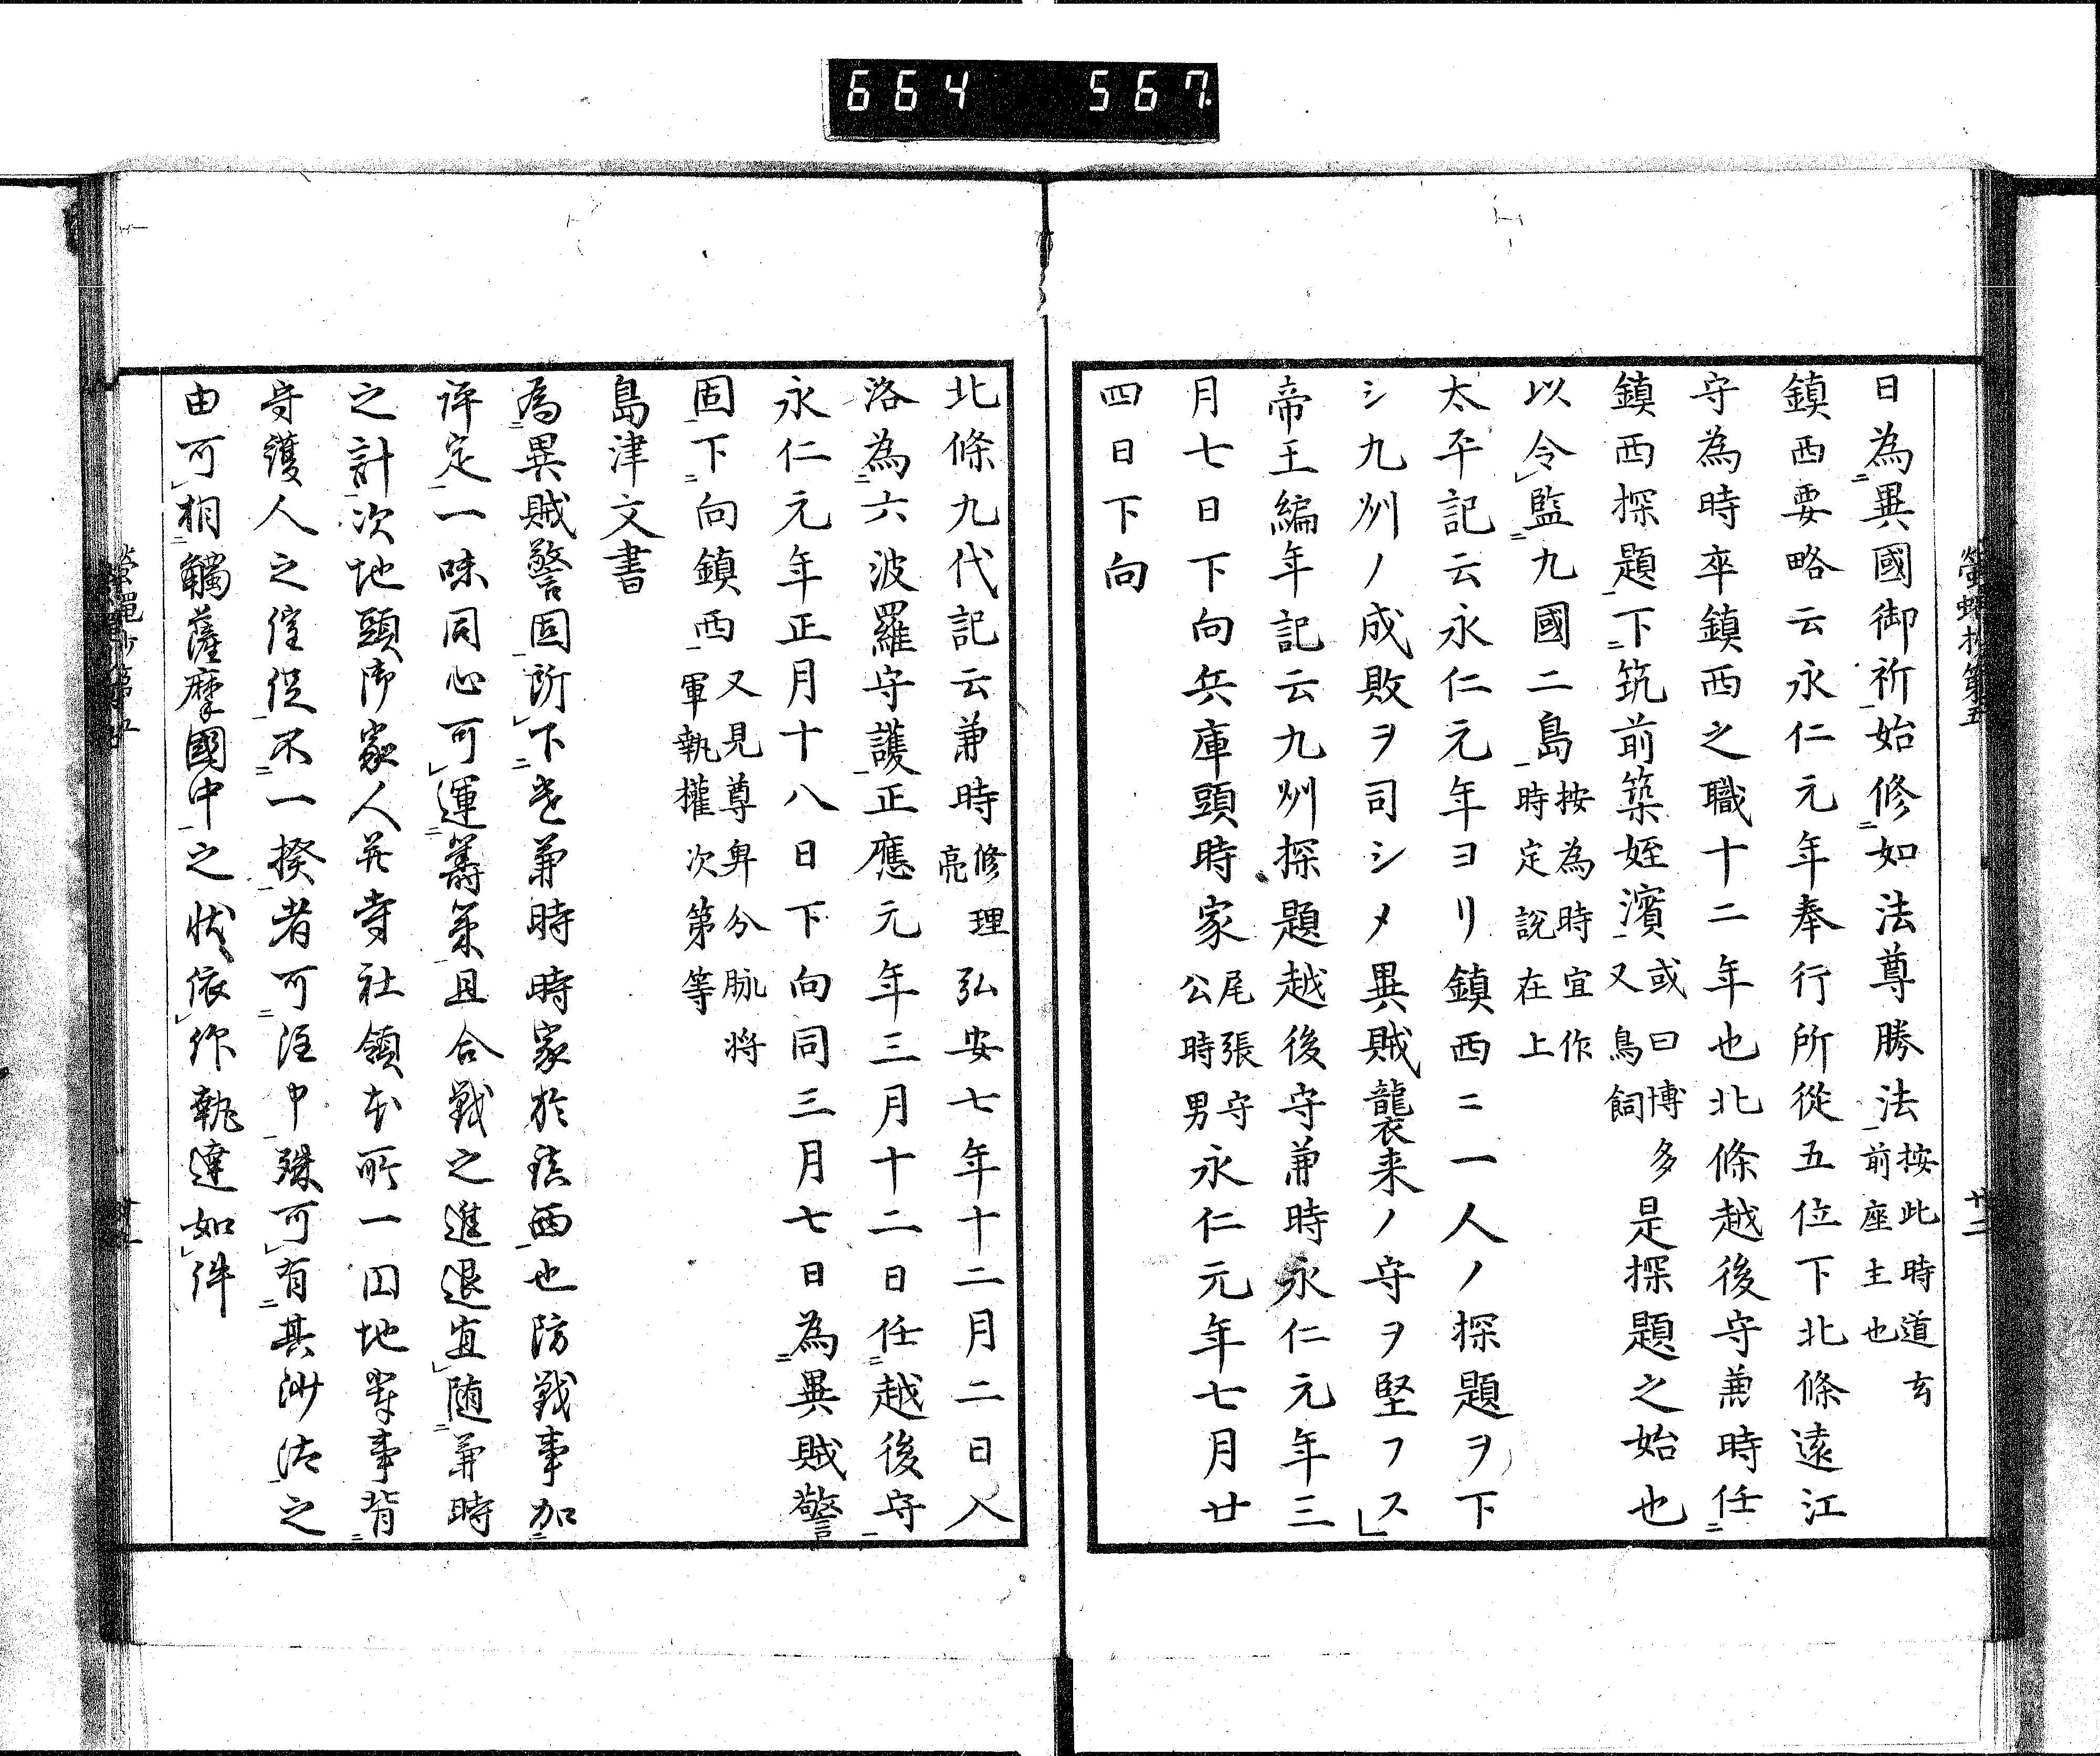 664 567
螢蠅抄第五
廿二
日為異國御祈始修如法尊勝法按此時道玄前座主也
鎮西要略云永仁元年奉行所從五位下北條遠江
守為時卒鎮西之職十二年也北條越後守兼時任
鎮西探題下筑前築姪濱或曰博多又鳥飼是探題之始也
以令監九國二島按為時宜作時定説在上
太平記云永仁元年ヨリ鎮西ニ一人ノ探題ヲ下
シ九州ノ成敗ヲ司シメ異賊襲来ノ守ヲ堅フス
帝王編年記云九州探題越後守兼時永仁元年三
月七日下向兵庫頭時家尾張守公時男永仁元年七月廿
四日下向
北條九代記云兼時修理亮弘安七年十二月二日入
洛為六波羅守護正應元年三月十二日任越後守
永仁元年正月十八日下向同三月七日為異賊警
固下向鎮西又見尊卑分脉将軍執權次第等
島津文書
為異賊警固所下遣兼時時家於鎮西也防戰事加
評定一味同心可運籌策且合戰之進退宜随兼時
之計次地頭御家人并寺社領本所一円地輩事背
守護人之催促不一揆者可注申殊可有其沙汰之
由可相觸薩摩國中之状依仰執達如件
螢蠅抄第五